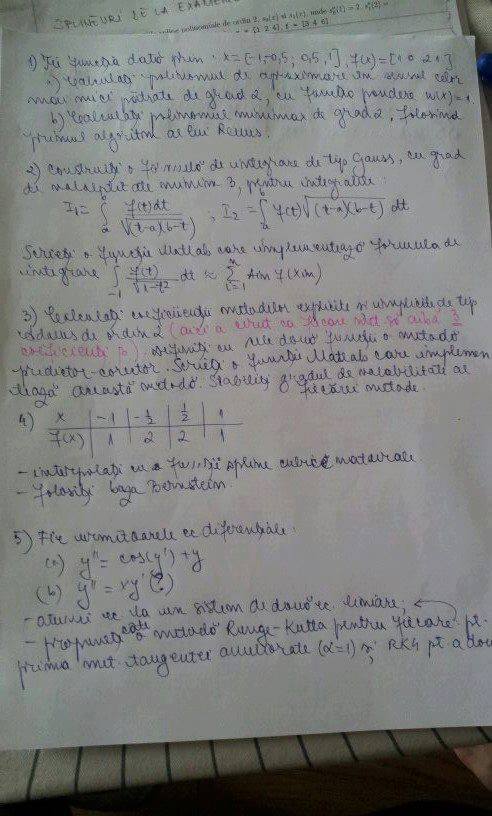 SPLINEURI DE LA EXAMENE
1) Fie funcția dată prin: x=[-1,-0,5, 0,5, 1], f(x)=[1 0 2 1]
a) Calculați polinomul de aproximare în sensul celor
mai mici pătrate de grad 2, cu funcția pondere w(x)=1
b) Calculați polinomul minimax de grad 2, folosind
primul algoritm al lui Remes.
2) Construiți o formulă de integrare de tip Gauss, cu grad
de valabilitate minim 3, pentru integralele:
I₁= ∫ₐᵇ f(t)dt / √(t-a)(b-t) ; I₂ = ∫ₐᵇ f(t)√(t-a)(b-t) dt
Scrieți o funcție Matlab care implementează formula de
integrare ∫₋₁¹ f(t)/√1-t² dt ≈ Σᵢ₌₁ᵐ Aim f(xim)
3) Calculați coeficienții metodelor explicite și implicite de tip
de ordin 2 (aici a cerut ca fiecare met să aibă 3
coeficienți b). Definiți cu cele două funcții o metodă
predictor-corector. Scrieți o funcție Matlab care implemen
tează această metodă. Stabiliți gradul de valabilitate al
fiecărei metode.
4) x | -1 | -1/2 | 1/2 | 1
f(x) | 1 | 2 | 2 | 1
- interpolați cu o funcții spline cubice naturale
- Folosiți baza Bernstein.
5) Fie următoarele ec diferențiale:
(a) y'' = cos(y') + y
(b) y'' = xy' (?)
- atunci ec la un sistem de două ec. liniare;
- propuneți câte o metodă Runge-Kutta pentru fiecare. pt.
prima met. tangentei ameliorate (α=1) și RK4 pt a dou